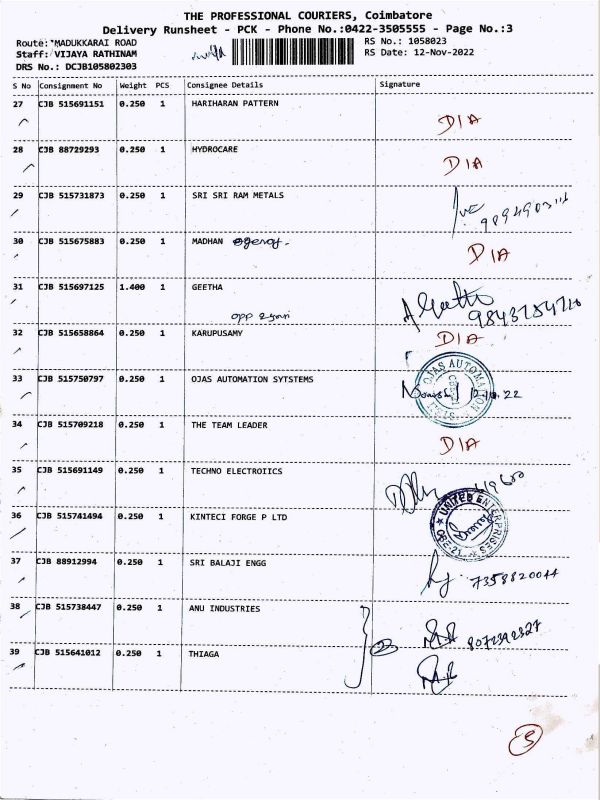 THE PROFESSIONAL COURIERS, Coimbatore
Delivery Runsheet - PCK - Phone No.:0422-3505555 - Page No.:3
Route:*MADUKKARAI ROAD
Staff: VIJAYA RATHINAM
DRS No.: DCJB105802303
RS No.: 1058023
RS Date: 12-Nov-2022
S No Consignment No Weight PCS Consignee Details Signature
27 CJB 515691151 0.250 1 HARIHARAN PATTERN DIA
28 CJB 88729293 0.250 1 HYDROCARE DIA
29 CJB 515731873 0.250 1 SRI SRI RAM METALS
30 CJB 515675883 0.250 1 MADHAN DIA
31 CJB 515697125 1.400 1 GEETHA
opp
32 CJB 515658864 0.250 1 KARUPUSAMY DIA
33 CJB 515750797 0.250 1 OJAS AUTOMATION SYTSTEMS OJAS AUTOMATION
34 CJB 515709218 0.250 1 THE TEAM LEADER DIA
35 CJB 515691149 0.250 1 TECHNO ELECTROIICS
36 CJB 515741494 0.250 1 KINTECI FORGE P LTD UNITED ENTERPRISES CBE-21
37 CJB 88912994 0.250 1 SRI BALAJI ENGG 7358820044
38 CJB 515738447 0.250 1 ANU INDUSTRIES
39 CJB 515641012 0.250 1 THIAGA
2
5